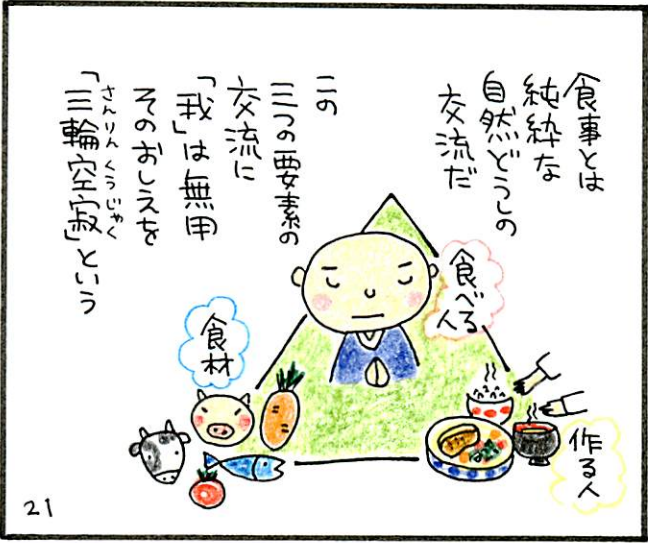 食事とは
純粋な
自然どうしの
交流だ
この
三つの要素の
交流に
「我」は無用
そのおしえを
「三輪空寂」という
さんりんくうじゃく
食べる
人
食材
作る人
21